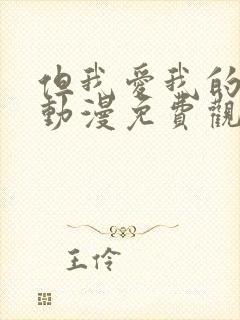 但我愛我的
動漫免費觀
王伶